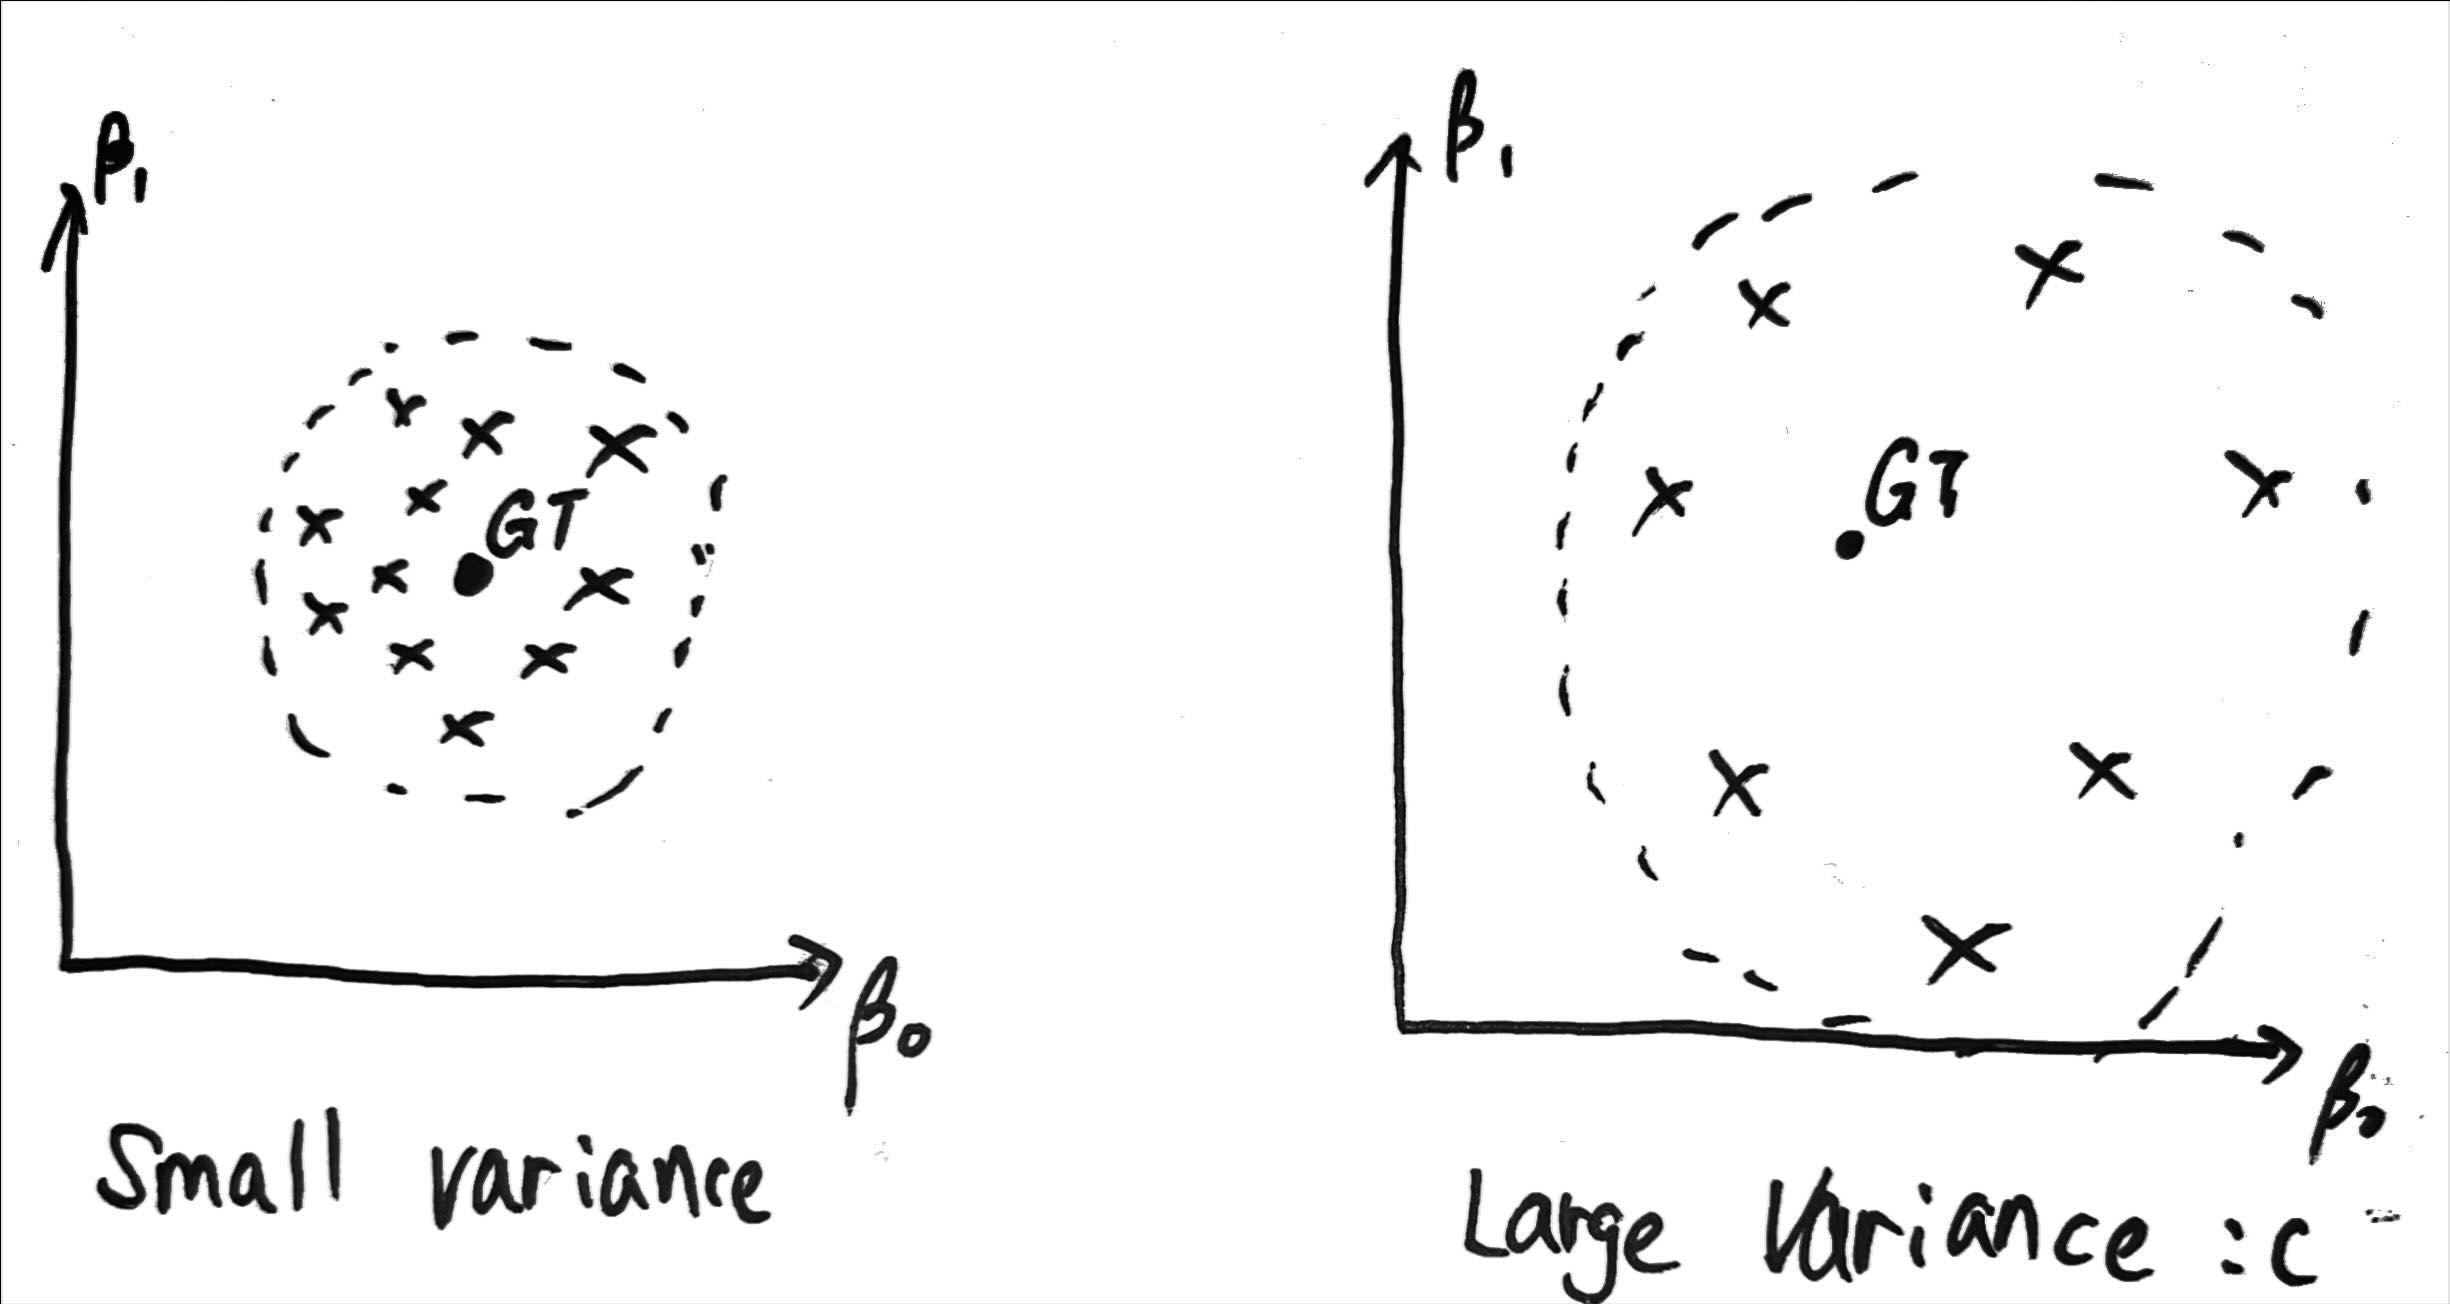 β₁
GT
β₀
Small variance
β₁
GT
β₀
Large Variance :c